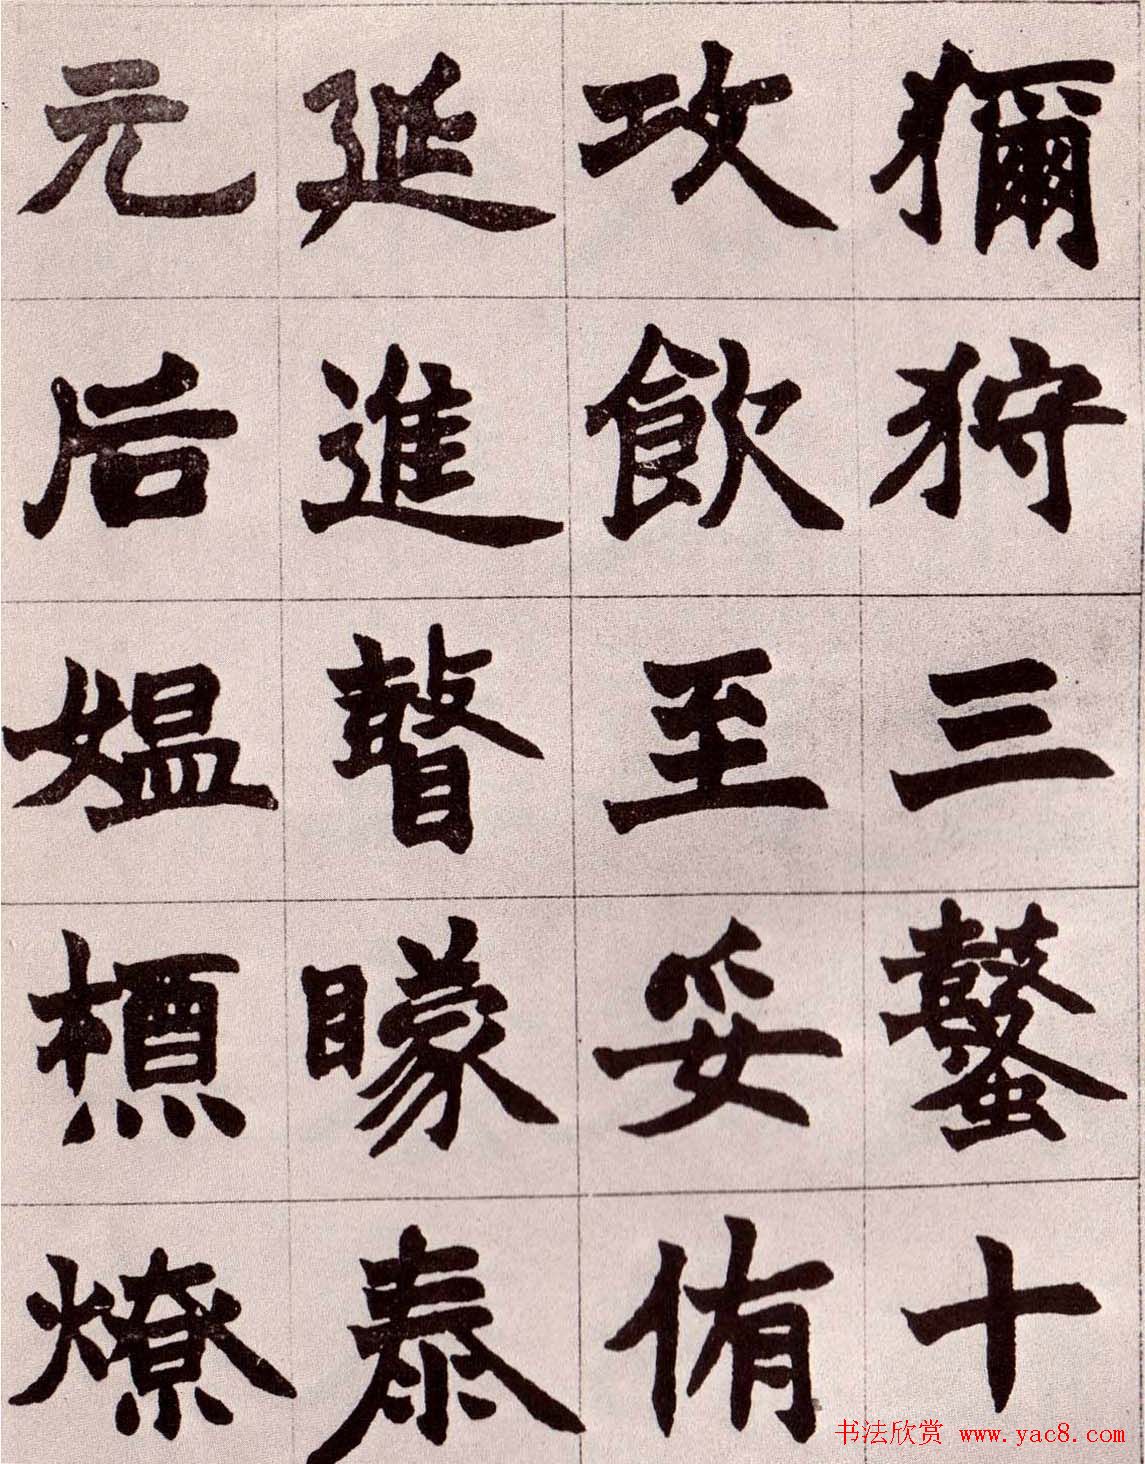 獮狩三鼜十
攻飲至妥侑
延進瞽矇泰
元后媪槱燎
书法欣赏 www.yac8.com